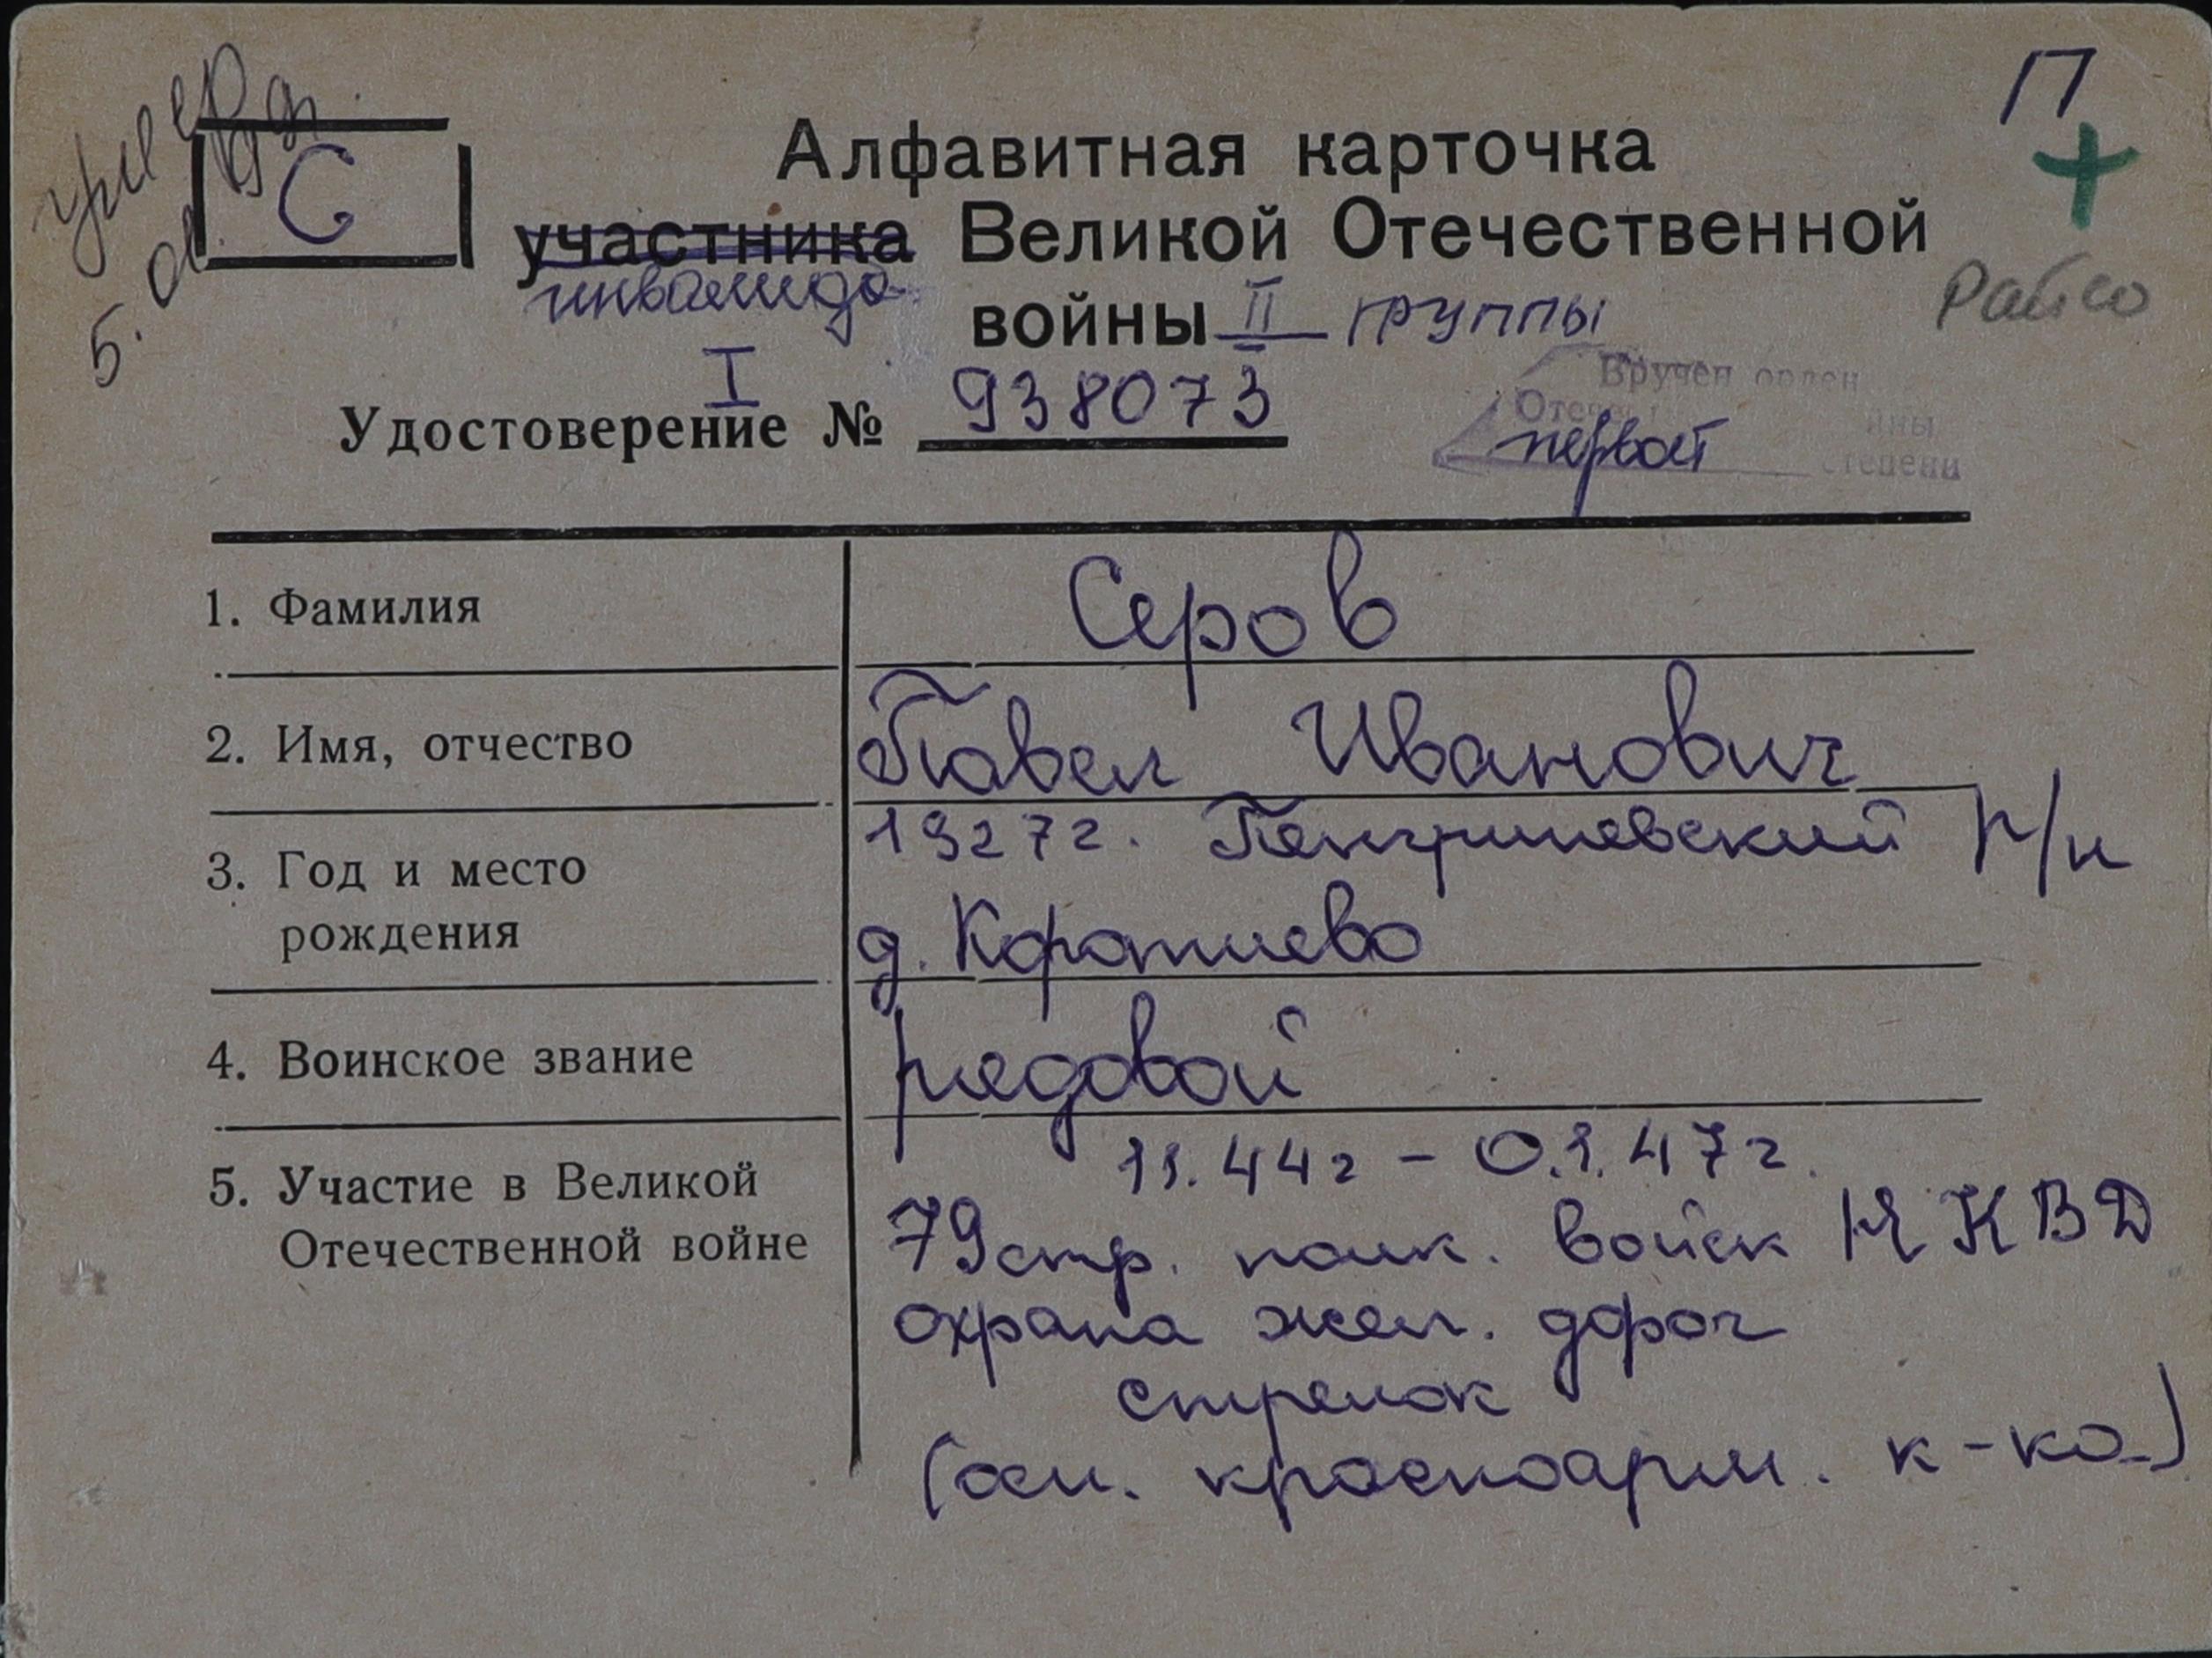 умер
5.
С
П
+
Алфавитная карточка
участника Великой Отечественной
инвалида
войны II группы
Райсо
I
Удостоверение № 938073
Вручен орден
первой
степени
1. Фамилия Серов
2. Имя, отчество Павел Иванович
3. Год и место 1927г. р/н
рождения д.
4. Воинское звание рядовой
5. Участие в Великой 11.44г - 0.1.47г.
Отечественной войне 79 стр. полк. войск НКВД
охрана жел. дорог
стрелок
(осн. красноарм. к-ка)